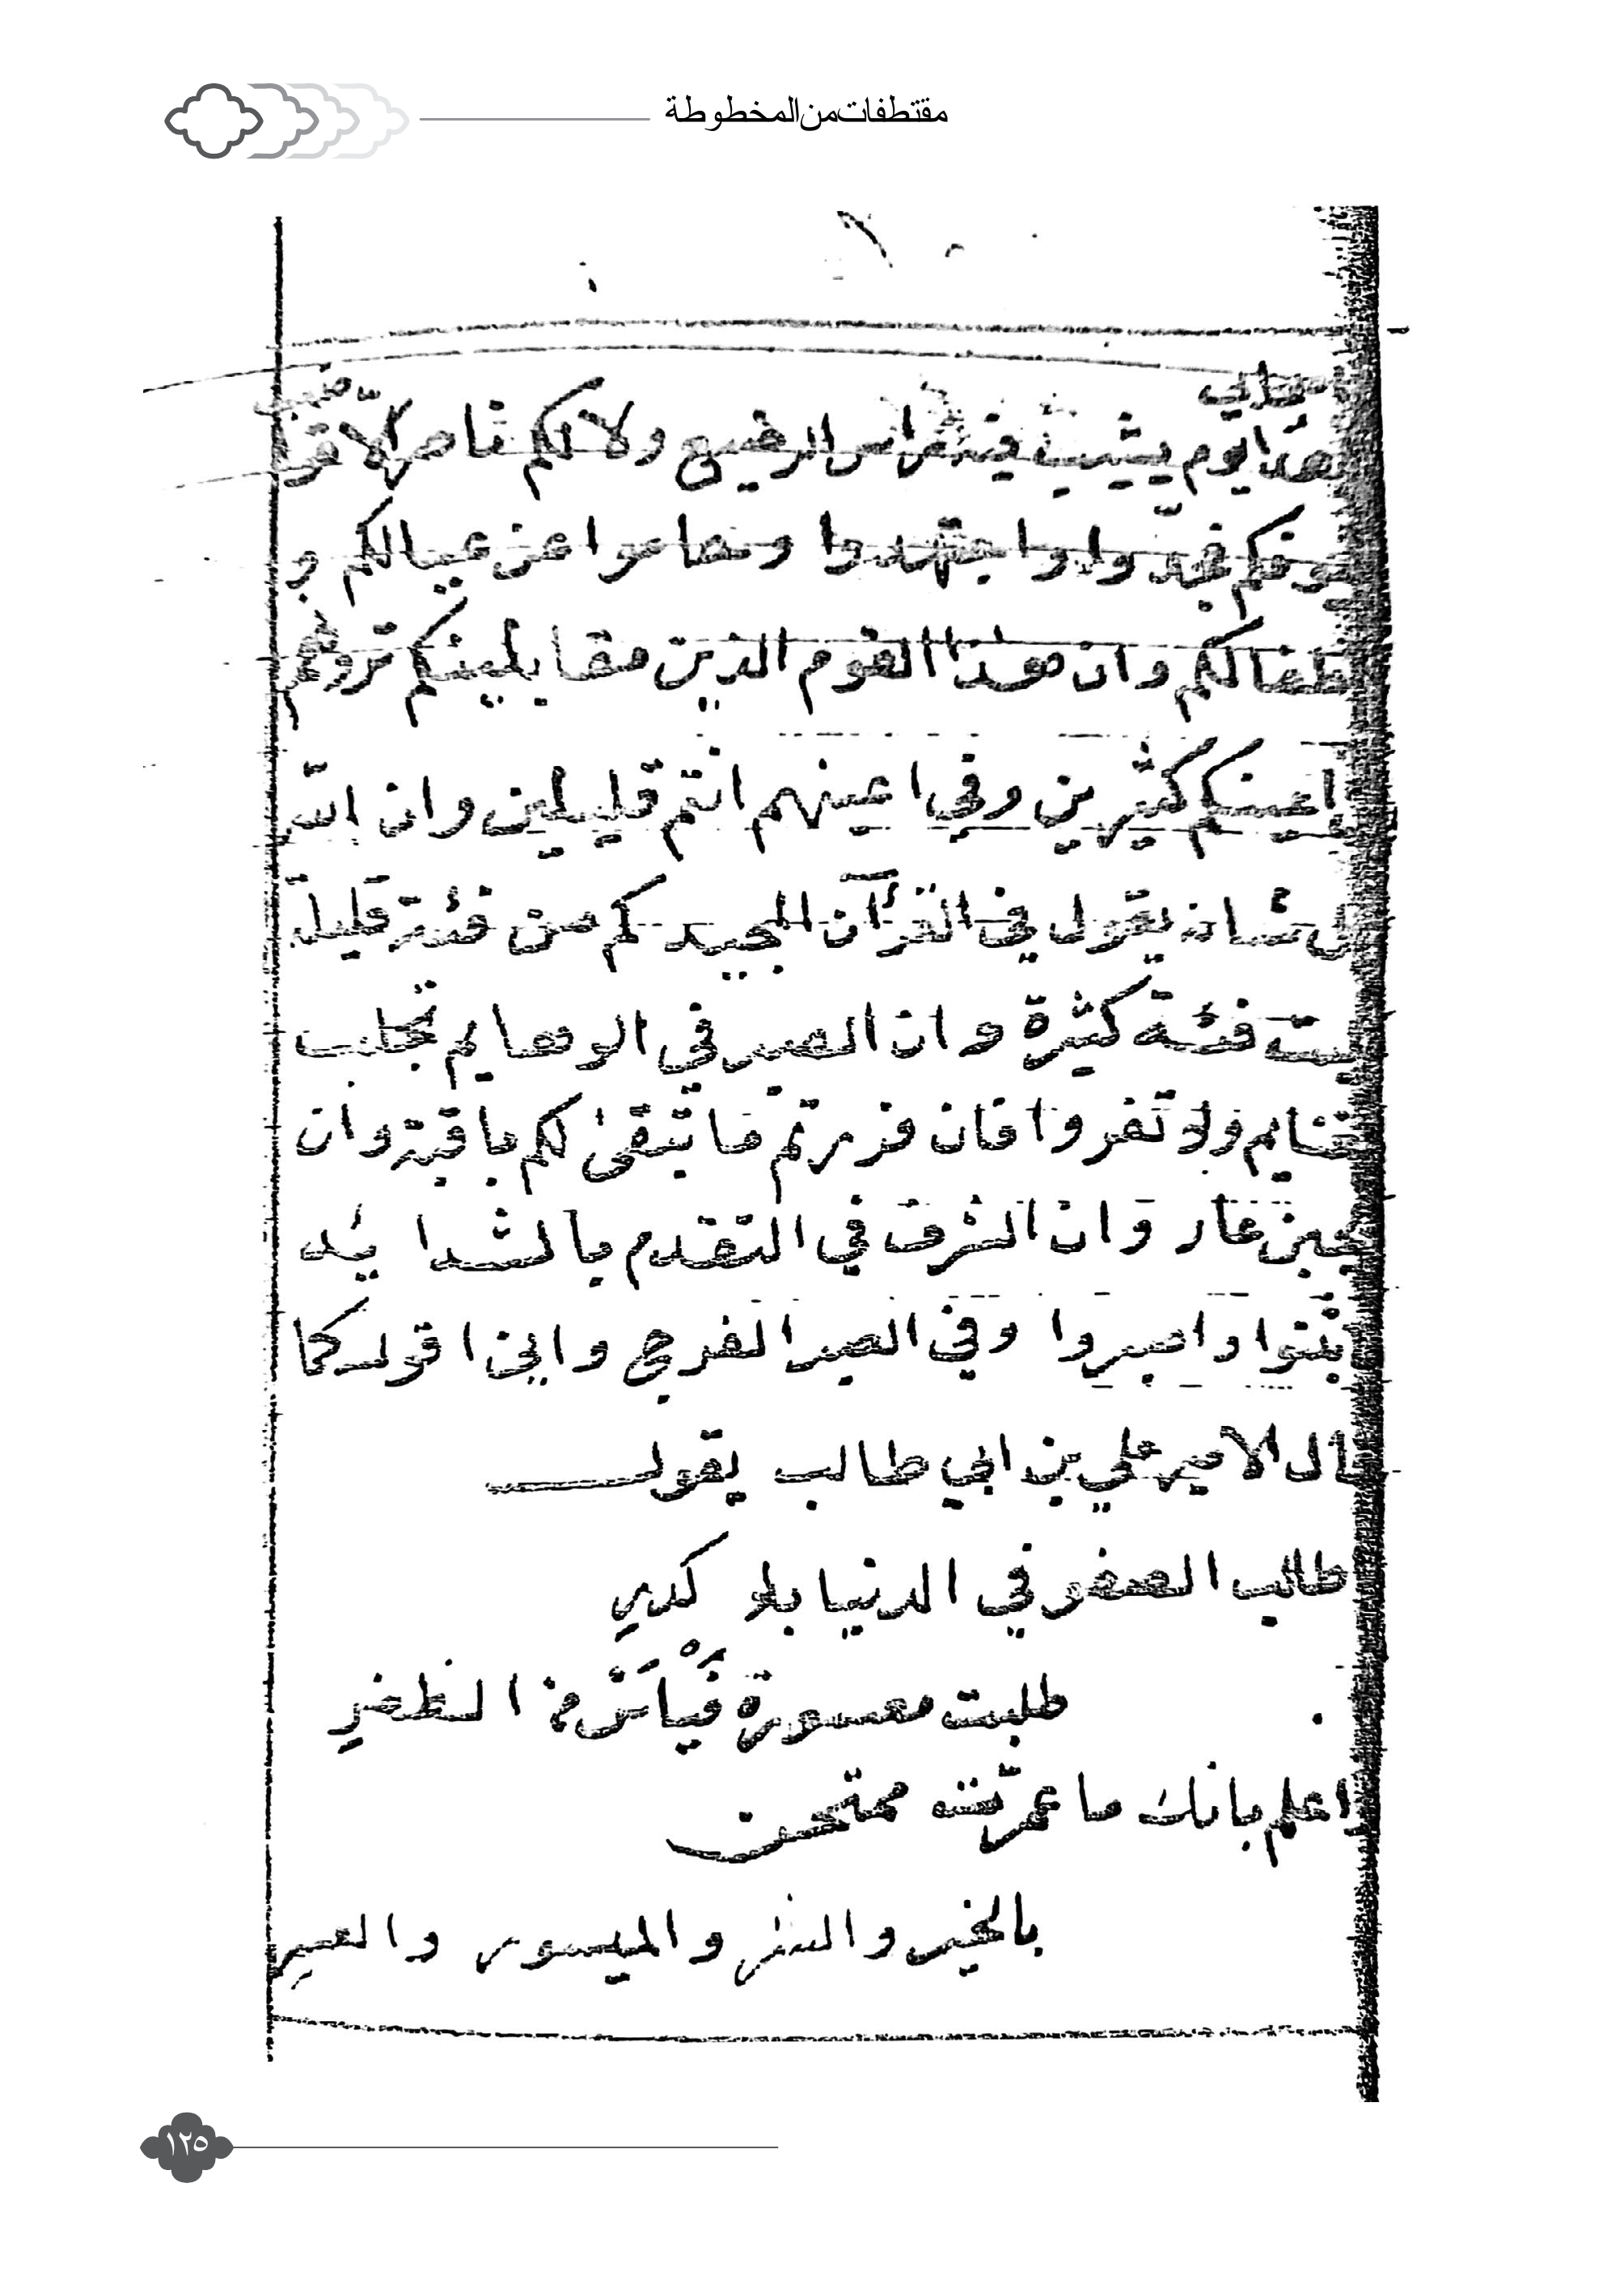 مقتطفات من المخطوطة
هذا يوم يشيب فيه راس الرضيع ولا لكم ناصر الا
فجدوا واجتهدوا وحاموا عن عيالكم و
طفالكم وان هذا القوم الذين مقابلينكم تروهم
اعينكم كثيرين وفي اعينهم انتم قليلين وان الله
شانه يقول في القرآن المجيد كم من فئة قليلة
فئة كثيرة وان الصبر في الوهايم تجلب
ولا تفروا فان فررتم ما تبقى لكم باقية وان
لجبن عار وان الشرف في التقدم بالشدايد
ثبتوا واصبروا وفي الصبر الفرج واني اقول كما
ال الامير علي بن ابي طالب يقول
طالب الصفو في الدنيا بلا كدر
طلبت معسورة فيأس من الظفر
اعلم بانك ما عمرّته ممتحن
بالخير والشر والميسور والعسر
١٢٥